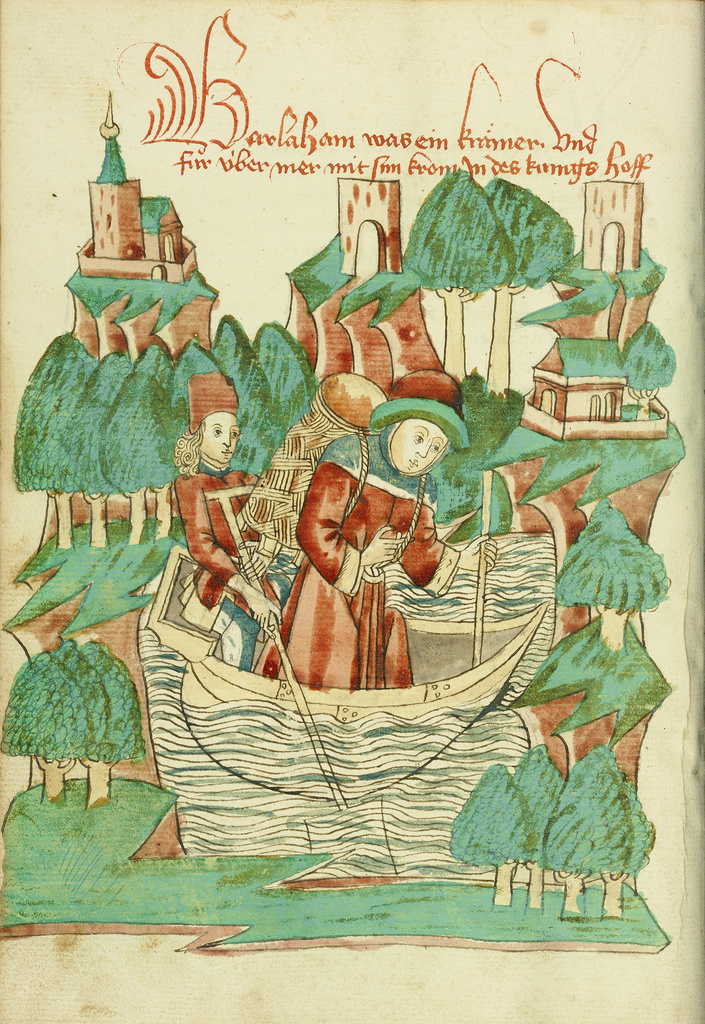 Barlaham was ein krämer. Vnd
für v́ber mer mit sim krom In des kunigs hoff